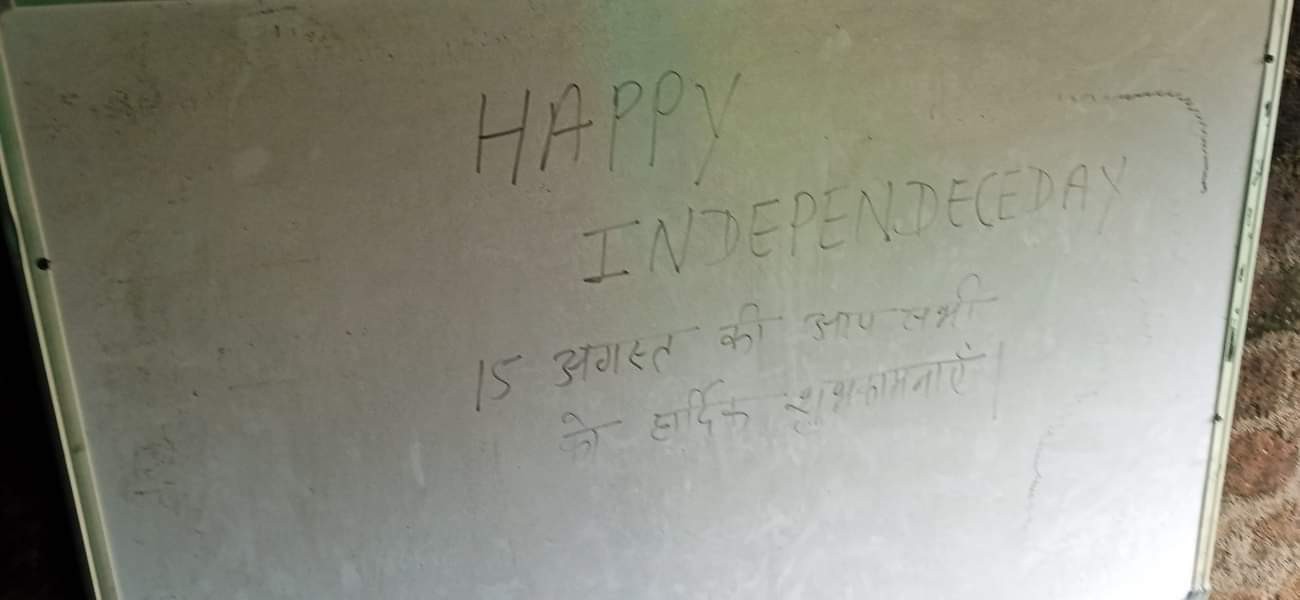 HAPPY
INDEPENDECEDAY
15 अगस्त की आप सभी
को हार्दिक शुभकामनाएं।